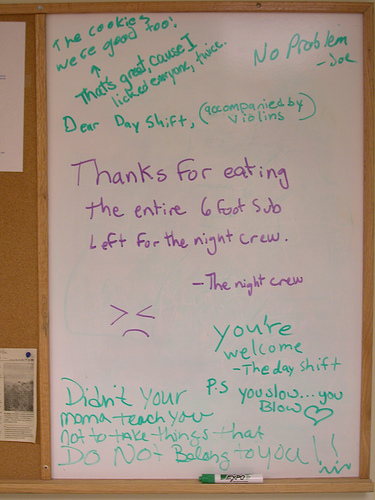 The cookies
were good too!
↑
That's great, cause I
licked everyone, twice.
No Problem
-Joe
Dear Day Shift, (accompanied by
violins)
Thanks for eating
the entire 6 foot sub
Left for the night crew.
-The night crew
you're
welcome
-The day shift
P.S you slow... you
Blow
Didn't your
moma teach you
not to take things that
Do Not Belong to you!!
EXPO